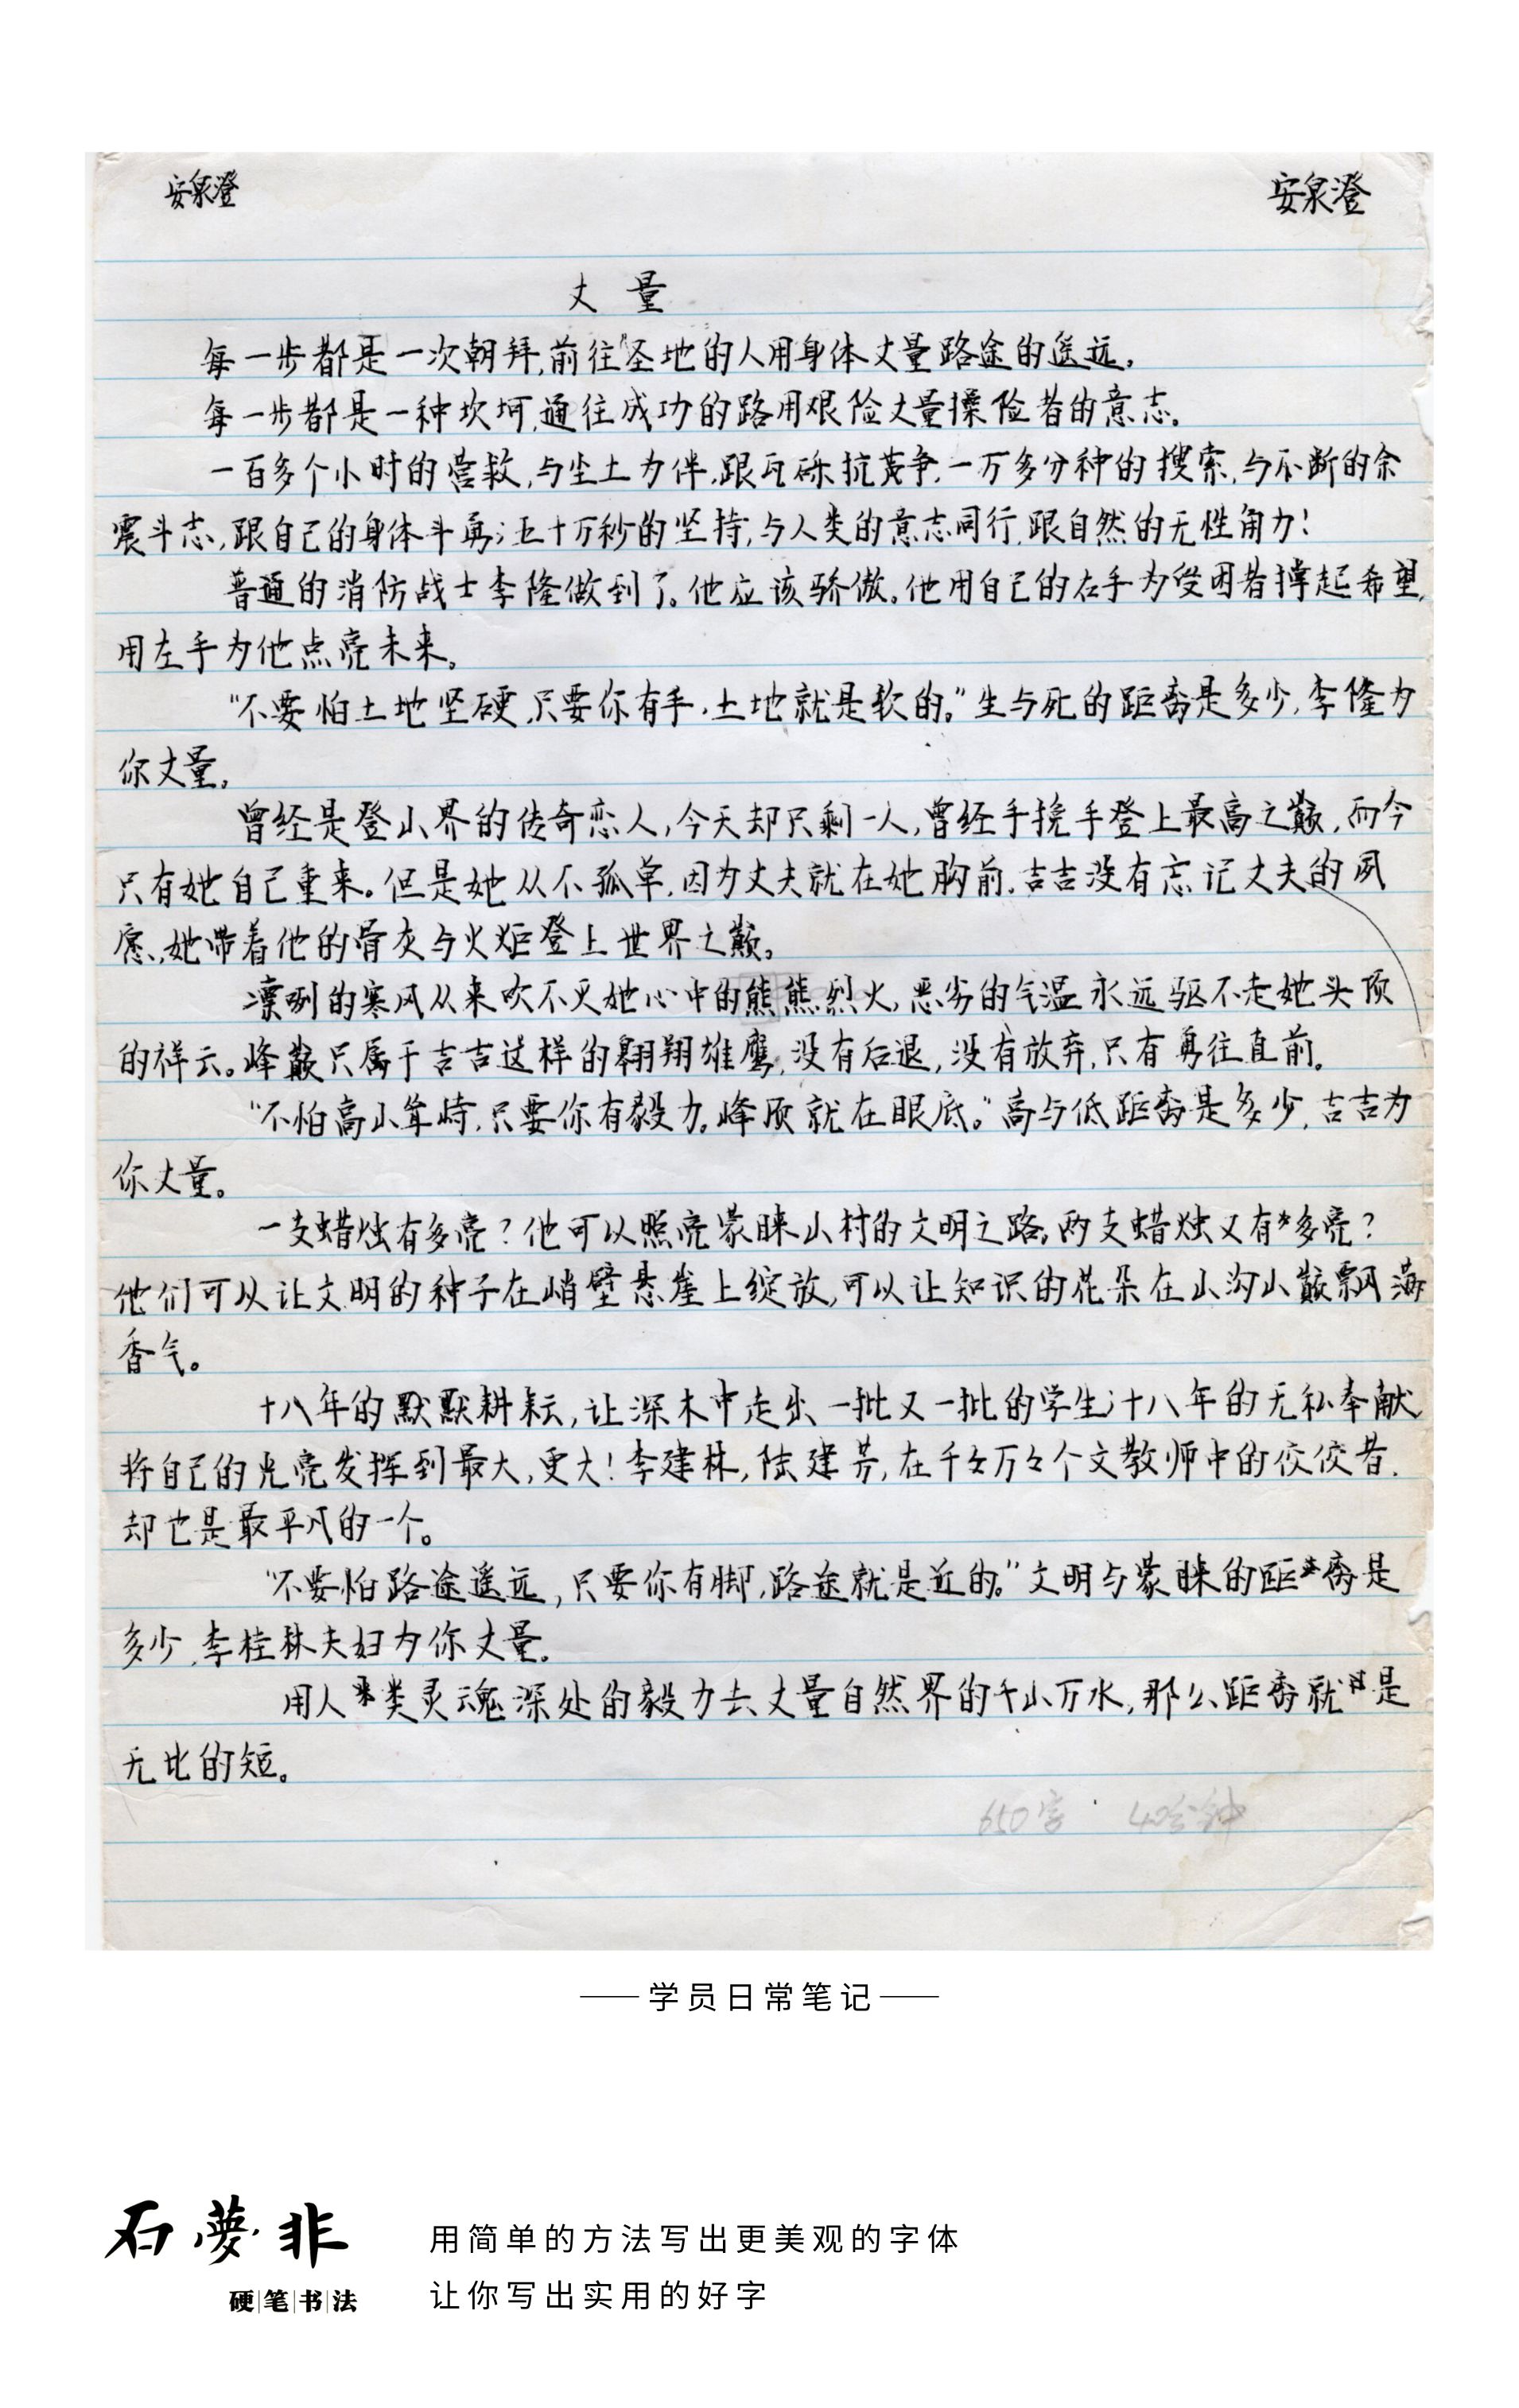 安泉澄 安泉澄
丈量
每一步都是一次朝拜,前往圣地的人用身体丈量路途的遥远。
每一步都是一种坎坷,通往成功的路用艰险丈量探险者的意志。
一百多个小时的营救,与尘土为伴,跟瓦砾抗争,一万多分种的搜索,与不断的余
震斗志,跟自己的身体斗勇;五十万秒的坚持,与人类的意志同行,跟自然的无性角力!
普通的消防战士李隆做到了。他应该骄傲。他用自己的右手为受困者撑起希望,
用左手为他点亮未来。
“不要怕土地坚硬,只要你有手,土地就是软的。”生与死的距离是多少,李隆为
你丈量。
曾经是登山界的传奇恋人,今天却只剩一人,曾经手挽手登上最高之巅,而今
只有她自己重来。但是她从不孤单,因为丈夫就在她胸前,吉吉没有忘记丈夫的夙
愿,她带着他的骨灰与火炬登上世界之巅。
凛冽的寒风从来吹不灭她心中的熊熊烈火,恶劣的气温永远驱不走她头顶
的祥云。峰巅只属于吉吉这样的翱翔雄鹰,没有后退,没有放弃,只有勇往直前。
“不怕高山耸峙,只要你有毅力。峰顶就在眼底。”高与低距离是多少,吉吉为
你丈量。
一支蜡烛有多亮?他可以照亮蒙昧山村的文明之路,两支蜡烛又有多亮?
他们可以让文明的种子在峭壁悬崖上绽放,可以让知识的花朵在山沟山巅飘满
香气。
十八年的默默耕耘,让深木中走出一批又一批的学生;十八年的无私奉献,
将自己的光亮发挥到最大,更大!李建林,陆建芳,在千千万万个文教师中的佼佼者,
却也是最平凡的一个。
“不要怕路途遥远,只要你有脚,路途就是近的。”文明与蒙昧的距离是
多少,李桂林夫妇为你丈量。
用人类灵魂深处的毅力去丈量自然界的千山万水,那么距离就是
无比的短。
650字 40分钟
学员日常笔记
石夢非
硬笔书法
用简单的方法写出更美观的字体
让你写出实用的好字